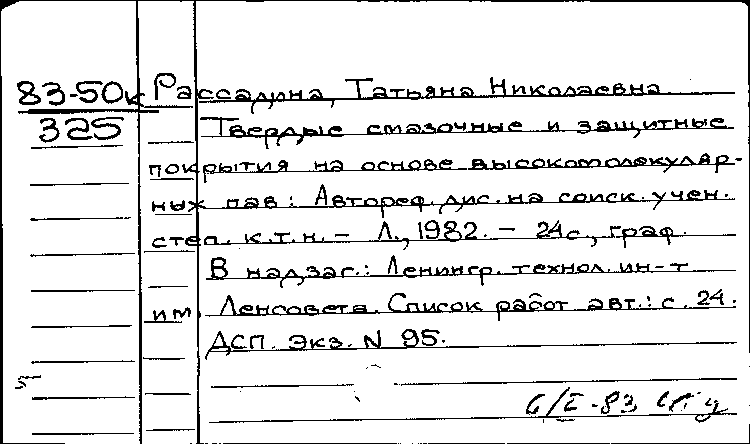 83-50к Рассадина, Татьяна Николаевна
325 Твердые смазочные и защитные
покрытия на основе высокомолекуляр-
ных пав: Автореф. дис. на соиск. учен.
степ. к.т.н. – Л., 1982. – 24с., граф.
В надзаг.: Ленингр. технол. ин-т
им. Ленсовета. Список работ авт.: с. 24.
ДСП. Экз. N 95.
6/I-83